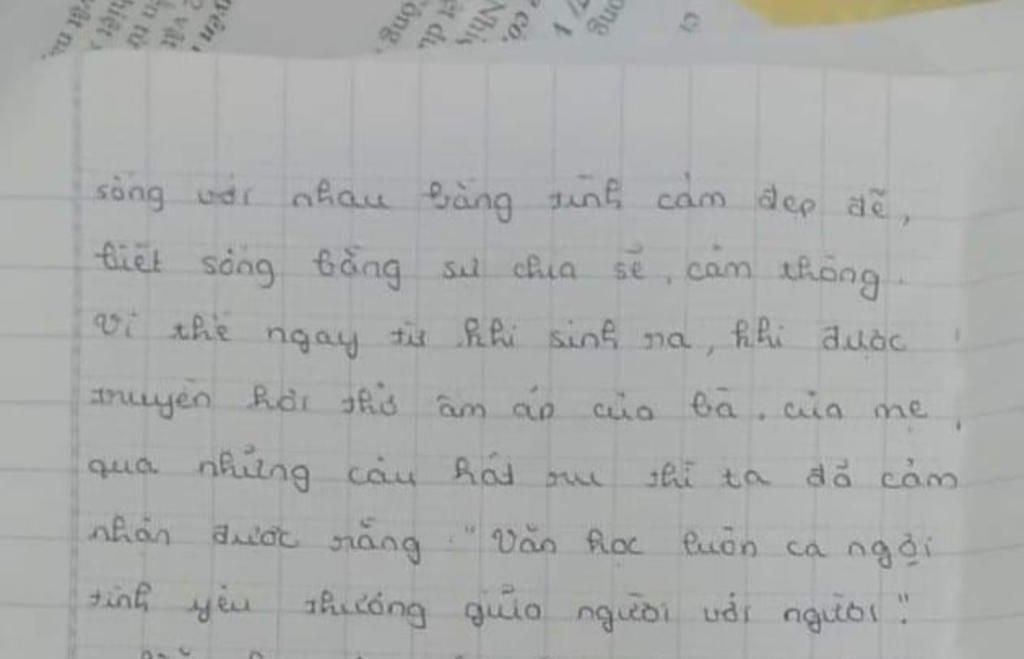 sống với nhau bằng tình cảm đẹp đẽ,
biết sống bằng sự chia sẻ, cảm thông.
Vì thế ngay từ khi sinh ra, khi được
truyền hơi thở ấm áp của bà, của mẹ,
qua những câu hát ru thì ta đã cảm
nhận được rằng "Văn học luôn ca ngợi
tình yêu thương giữa người với người".